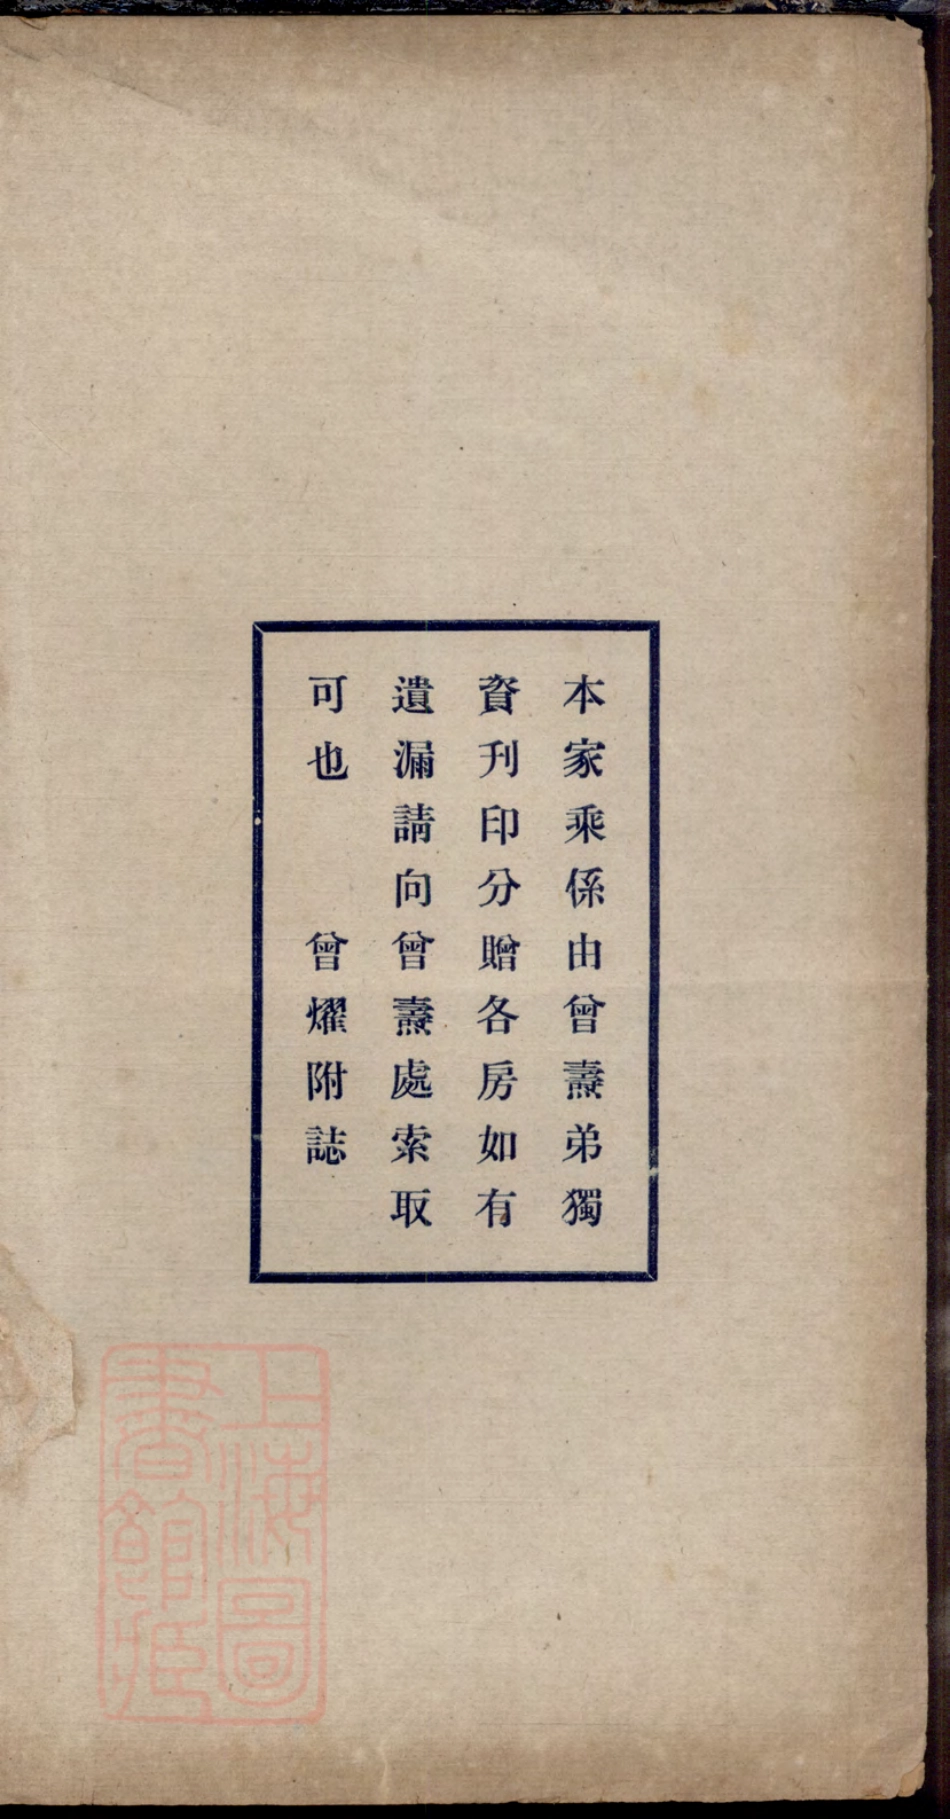 本家乘係由曾燾弟獨
資刊印分贈各房如有
遺漏請向曾燾處索取
可也　　曾燿附誌
上海圖
書館藏